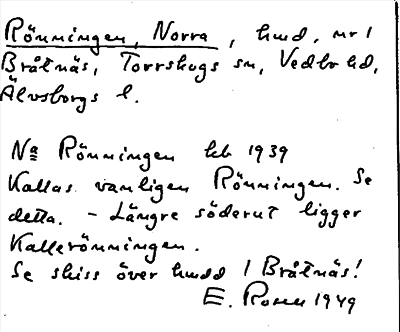 Rönningen, Norra, hmd, nr 1
Bråtnäs, Torrskogs sn, Vedbo hd,
Älvsborgs l.
Na Rönningen kb 1939
Kallas vanligen Rönningen. Se
detta. - Längre söderut ligger
Kallerönningen.
Se skiss över hmdd 1 Bråtnäs!
E. Rosen 1949